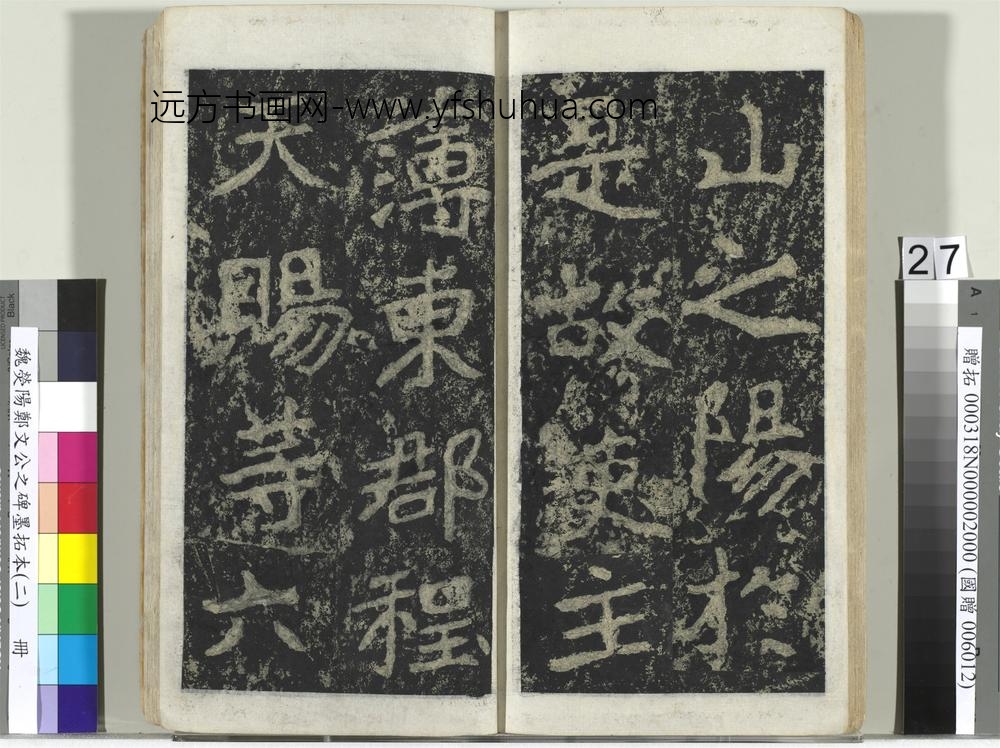 山之陽於
是故吏主
薄東郡程
天賜等六
远方书画网-www.yfshuhua.com
27
贈拓 000318N000002000 (國贈 006012)
魏滎陽鄭文公之碑墨拓本(二) 冊
Black
A
1